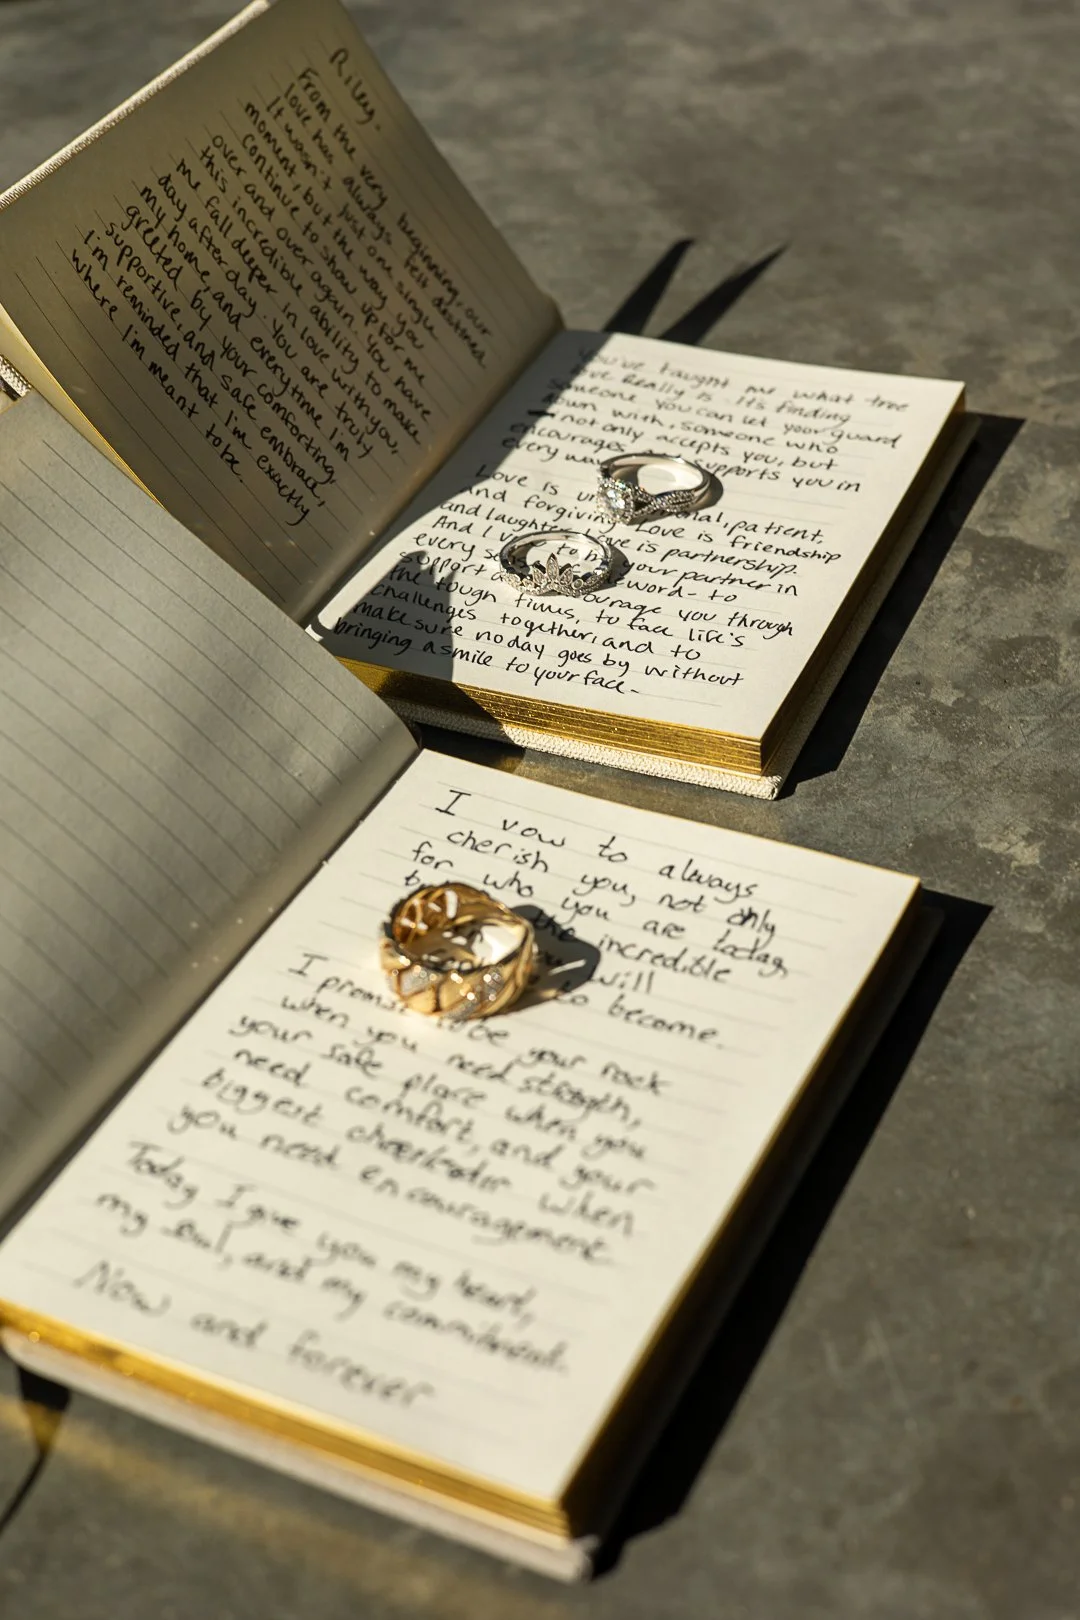 Riley.
From the very beginning, our
love has always felt destined
It wasn't just one single
moment, but the way you
continue to show up for me
over and over again. You have
this incredible ability to make
me fall deeper in love with you,
day after day. You are truly
my home, and everytime I'm
greeted by your comforting,
supportive, and safe embrace,
I'm reminded that I'm exactly
where I'm meant to be.
You've taught me what true
love really is. It's finding
someone you can let your guard
down with, someone who
not only accepts you, but
encourages supports you in
every way
Love is patient,
and forgiving. Love is friendship
and laughter. Love is partnership.
And I to your partner in
every word- to
support you through
the tough times, to face life's
challenges together, and to
make sure no day goes by without
bringing a smile to your face.
I vow to always
cherish you, not only
for who you are today,
the incredible
you will
to become.
I promise to be your rock
when you need strength,
your safe place when you
need comfort, and your
biggest cheerleader when
you need encouragement.
Today I give you my heart,
my soul, and my commitment.
Now and forever